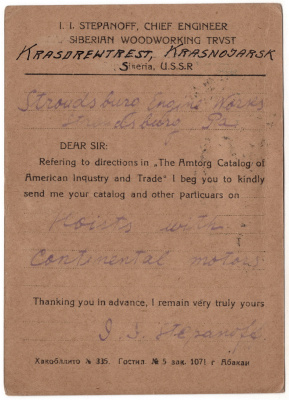 I. I. STEPANOFF, CHIEF ENGINEER
SIBERIAN WOODWORKING TRVST
KRASDREWTREST, KRASNOJARSK
Siberia, U.S.S.R
Stroudsburg Engine Works
Stroudsburg Pa.
DEAR SIR:
Refering to directions in „The Amtorg Catalog of
American Industry and Trade" I beg you to kindly
send me your catalog and other particuars on
Hoists with
Continental motors
Thanking you in advance, I remain very truly yours
I. I. Stepanoff
Хакобллито № 335. Гостип № 5 зак. 1071 г Абакан